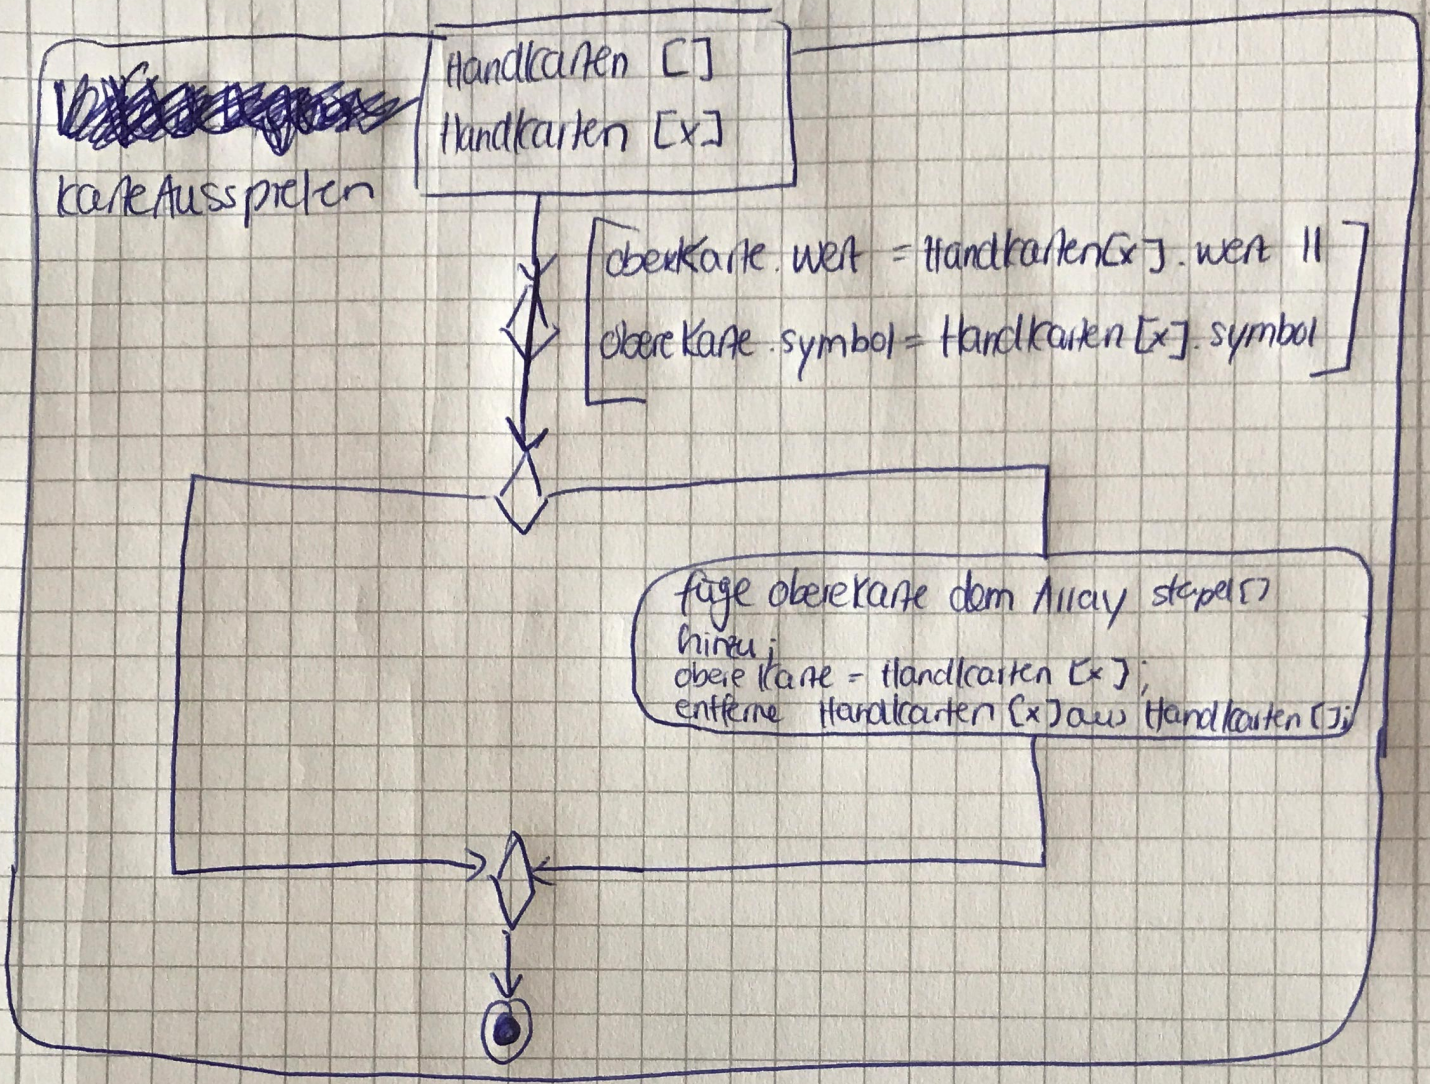 Handkarten []
Handkarten [x]
karteAusspielen
obereKarte.wert = Handkarten[x].wert ||
obereKarte.symbol = Handkarten[x].symbol
füge obereKarte dem Array stapel[]
hinzu;
obereKarte = Handkarten [x];
entferne Handkarten [x] aus Handkarten [];